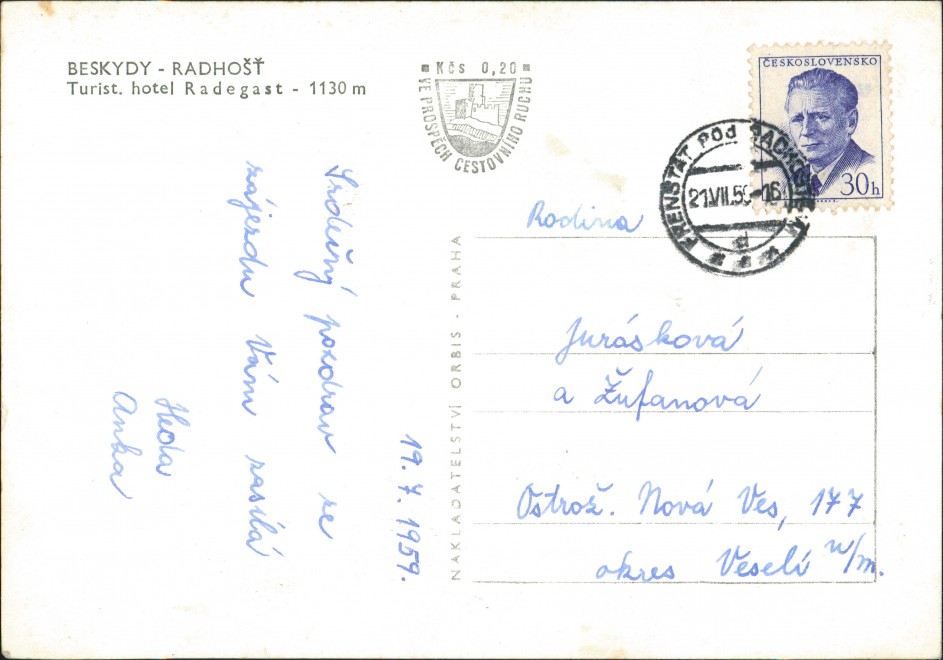 BESKYDY - RADHOŠŤ
Turist. hotel Radegast - 1130 m
Kčs 0,20
VE PROSPĚCH CESTOVNÍHO RUCHU
ČESKOSLOVENSKO
30h
FRENŠTÁT POd RADHOŠTĚM
21.VII.59-16
d
19. 7. 1959.
Srdečný pozdrav ze
zájezdu Vám zasílá
Heda
Anka
NAKLADATELSTVÍ ORBIS - PRAHA
Rodina
Jurásková
a Žufanová
Ostrož. Nová Ves, 177
okres Veselí n/m.